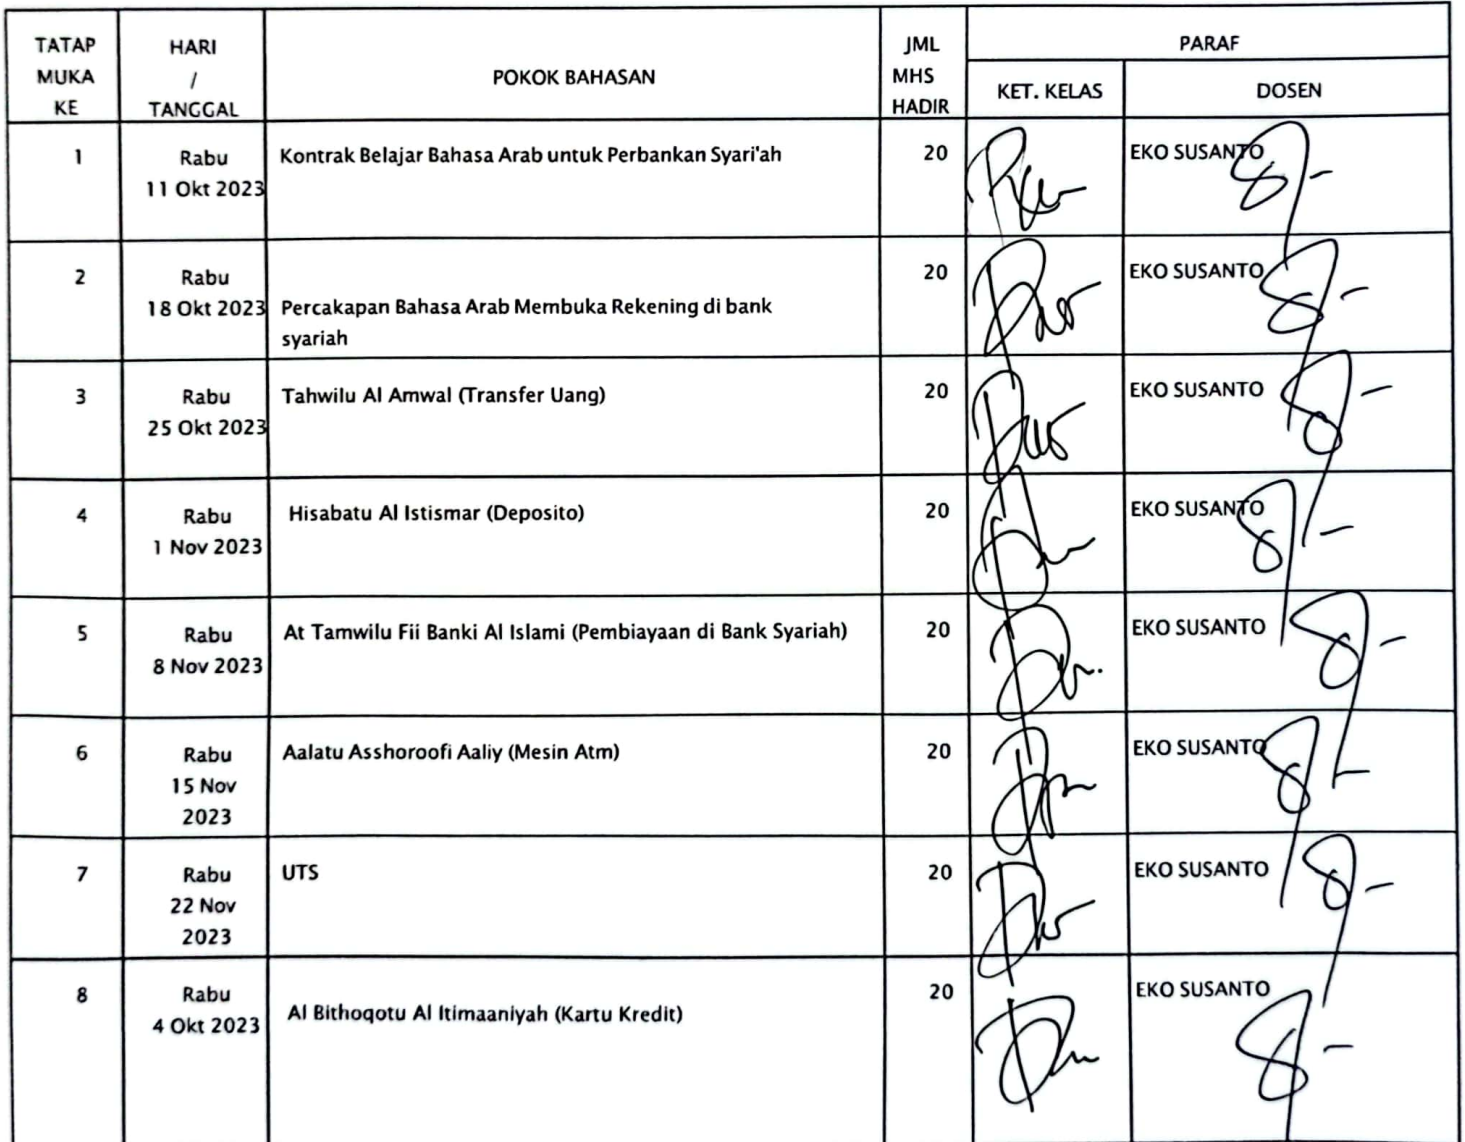 TATAP MUKA KE
HARI / TANGGAL
POKOK BAHASAN
JML MHS HADIR
PARAF
KET. KELAS
DOSEN
1
Rabu
11 Okt 2023
Kontrak Belajar Bahasa Arab untuk Perbankan Syari'ah
20
EKO SUSANTO
2
Rabu
18 Okt 2023
Percakapan Bahasa Arab Membuka Rekening di bank
syariah
20
EKO SUSANTO
3
Rabu
25 Okt 2023
Tahwilu Al Amwal (Transfer Uang)
20
EKO SUSANTO
4
Rabu
1 Nov 2023
Hisabatu Al Istismar (Deposito)
20
EKO SUSANTO
5
Rabu
8 Nov 2023
At Tamwilu Fii Banki Al Islami (Pembiayaan di Bank Syariah)
20
EKO SUSANTO
6
Rabu
15 Nov
2023
Aalatu Asshoroofi Aaliy (Mesin Atm)
20
EKO SUSANTO
7
Rabu
22 Nov
2023
UTS
20
EKO SUSANTO
8
Rabu
4 Okt 2023
Al Bithoqotu Al Itimaaniyah (Kartu Kredit)
20
EKO SUSANTO